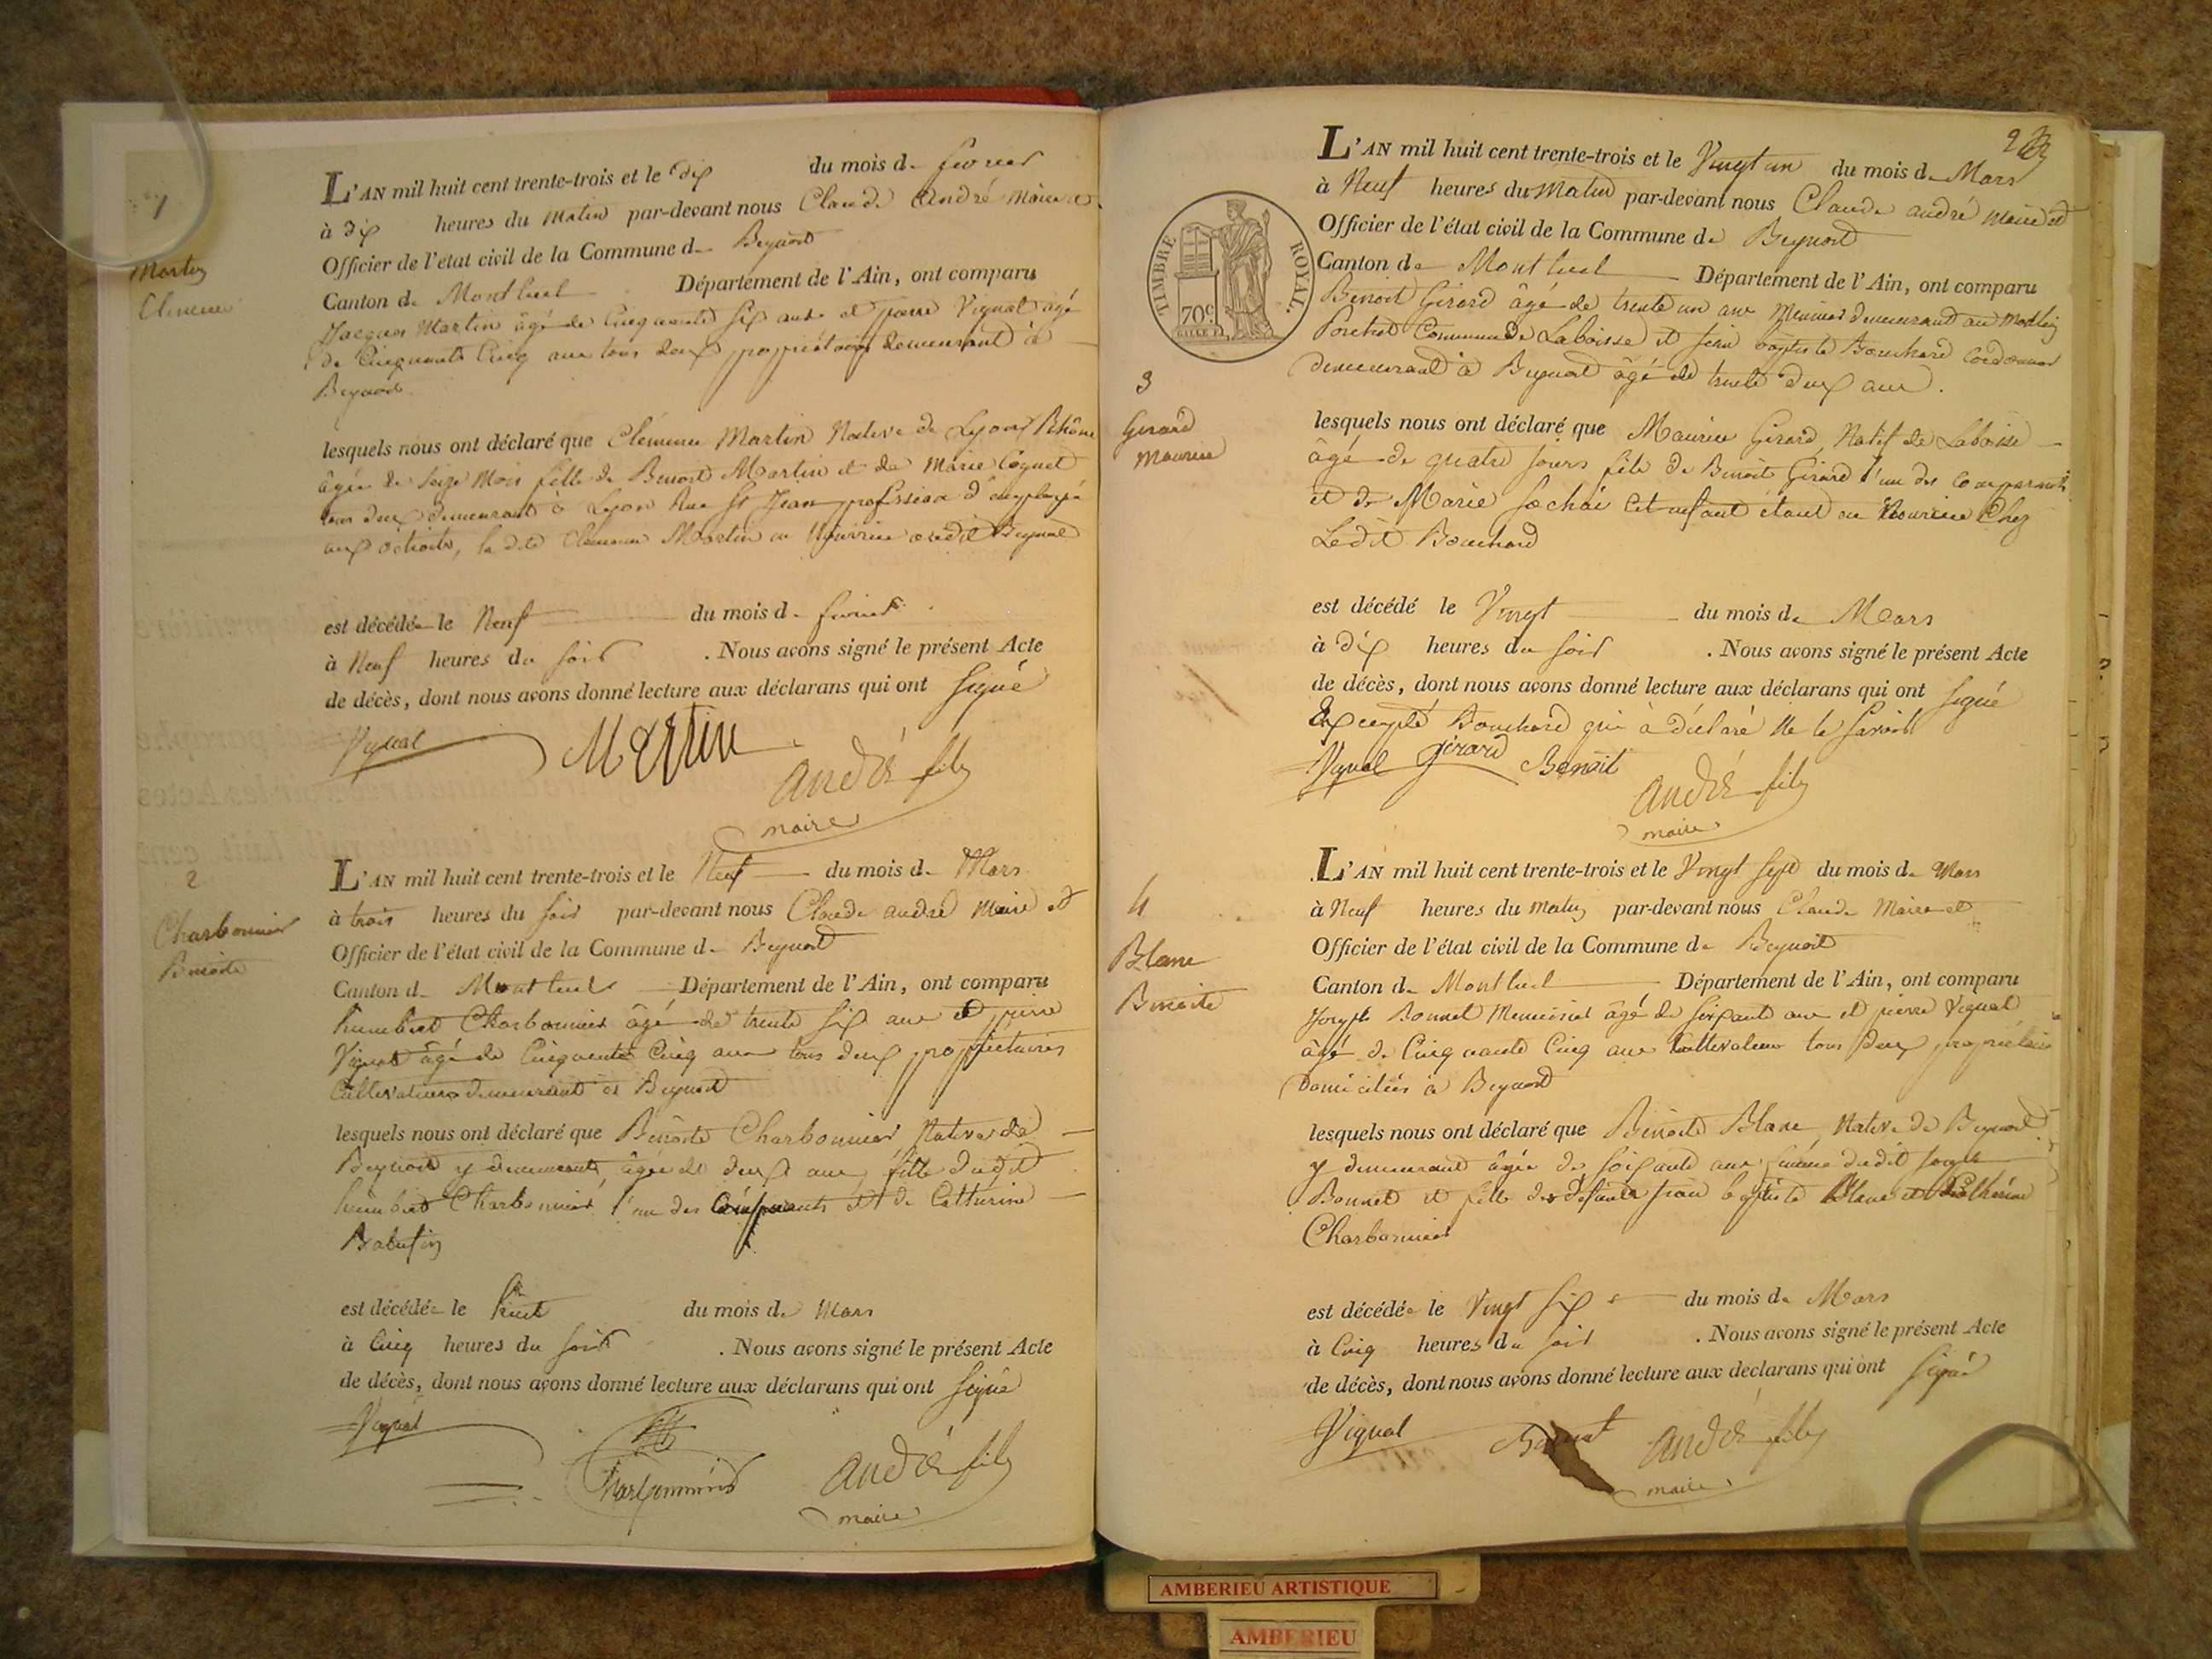 1
Martin
Clémence
L'AN mil huit cent trente-trois et le dix du mois de février
à dix heures du matin par-devant nous Claude André Maire et
Officier de l'état civil de la Commune de Beynost
Canton de Montluel Département de l'Ain, ont comparu
Jacques Martin âgé de Cinquante six ans et pierre Vignat âgé
de Cinquante Cinq ans tous deux propriétaires demeurant à
Beynost
lesquels nous ont déclaré que Clémence Martin Native de Lyon Rhône
âgée de seize Mois fille de Benoit Martin et de Marie Coquet
tous deux demeurant à Lyon Rue St Jean profession d'employé
aux octrois, la dite Clémence Martin en Nourrice audit Beynost
est décédée le Neuf du mois de février
à Neuf heures du soir . Nous avons signé le présent Acte
de décès, dont nous avons donné lecture aux déclarans qui ont signé
Vignat Martin André fils
maire
2
Charbonnier
Benoite
L'AN mil huit cent trente-trois et le Neuf du mois de Mars
à trois heures du soir par-devant nous Claude André Maire et
Officier de l'état civil de la Commune de Beynost
Canton de Montluel Département de l'Ain, ont comparu
humbert Charbonnier âgé de trente six ans et pierre
Vignat âgé de Cinquante Cinq ans tous deux propriétaires
Cultivateurs demeurant à Beynost
lesquels nous ont déclaré que Benoite Charbonnier Native de
Beynost y demeurant, âgée de deux ans, fille dudit
humbert Charbonnier l'un des Comparants et de Catherine
est décédée le huit du mois de Mars
à Cinq heures du soir . Nous avons signé le présent Acte
de décès, dont nous avons donné lecture aux déclarans qui ont signé
Vignat
Charbonnier André fils
maire
2
L'AN mil huit cent trente-trois et le Vingt un du mois de Mars
à Neuf heures du Matin par-devant nous Claude André Maire et
Officier de l'état civil de la Commune de Beynost
Canton de Montluel Département de l'Ain, ont comparu
TIMBRE ROYAL.
70c
Benoit Girard âgé de trente un ans Meunier demeurant au Moulin
Porchet Commune de Laboisse et jean baptiste Bouchard Cordonnier
demeurant à Beynost âgé de trente deux ans.
3
Girard
Maurice
lesquels nous ont déclaré que Maurice Girard, Natif de Laboisse
âgé de quatre jours fils de Benoit Girard l'un des Comparants
et de Marie Sochai Cet enfant étant en Nourrice Chez
Ledit Bouchard
est décédé le Vingt du mois de Mars
à dix heures du soir . Nous avons signé le présent Acte
de décès, dont nous avons donné lecture aux déclarans qui ont signé
Excepté Bouchard qui à déclaré Ne le savoir
Vignat girard Benoit André fils
maire
4
Blanc
Benoite
L'AN mil huit cent trente-trois et le Vingt sept du mois de Mars
à Neuf heures du matin par-devant nous Claude Maire et
Officier de l'état civil de la Commune de Beynost
Canton de Montluel Département de l'Ain, ont comparu
Joseph Bonnet Menuisier âgé de soixante ans et pierre Vignat
âgé de Cinquante Cinq ans Cultivateur tous deux propriétaires
Domiciliés à Beynost
lesquels nous ont déclaré que Benoite Blanc, Native de Beynost
y demeurant âgée de soixante ans femme dudit joseph
Bonnet et fille des défunts jean baptiste Blanc et Catherine
Charbonnier
est décédée le Vingt six du mois de Mars
à Cinq heures du soir . Nous avons signé le présent Acte
de décès, dont nous avons donné lecture aux declarans qui ont signé
Vignat Bonnet André fils
maire
AMBERIEU ARTISTIQUE
AMBERIEU